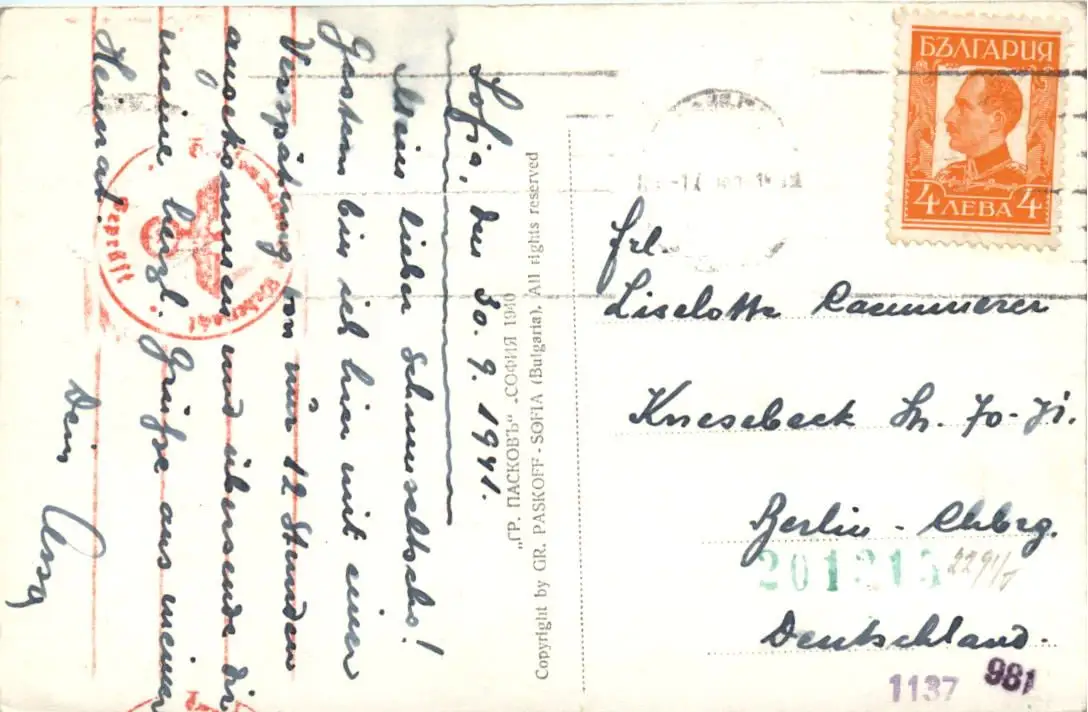 Sofia, den 30. 9. 1941.
Mein lieber
Gestern bin ich hier mit einer
Verspätung von nur 12 Stunden
angekommen und übersende dir
meine herzl. Grüße aus meiner
Heimat.
Dein
Geprüft
„ГР. ПАСКОВЪ" - СОФИЯ 1940
Copyright by GR. PASKOFF - SOFIA (Bulgaria). All rights reserved
БЪЛГАРИЯ
4 ЛЕВА 4
Frl.
Liselotte Cammerer
Knesebeck Str. 70-71.
Berlin - Chbrg.
201213
Deutschland.
1137
981